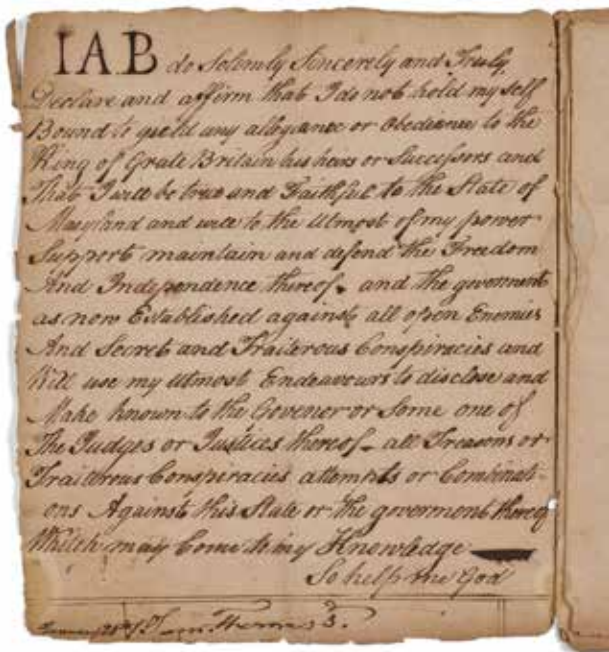 I A B do Solemly Sincerely and Truly
Declare and affirm that I do not hold my self
Bound to yield any allegance or Obedience to the
King of Grate Britain his heirs or Successors and
That I will be true and Faithful to the State of
Maryland and will to the Utmost of my power
Support maintain and defend the Freedom
And Independence thereof and the goverment
as now Established against all open Enemies
And Secret and Traiterous Conspiracies and
Will use my utmost Endeavours to disclose and
Make known to the Govenor or Some one of
The Judges or Justices thereof all Treasons or
Traiterous Conspiracies attempts or Combinati-
ons Against this State or the goverment thereof
Which may Come to my Knowledge
So help me God